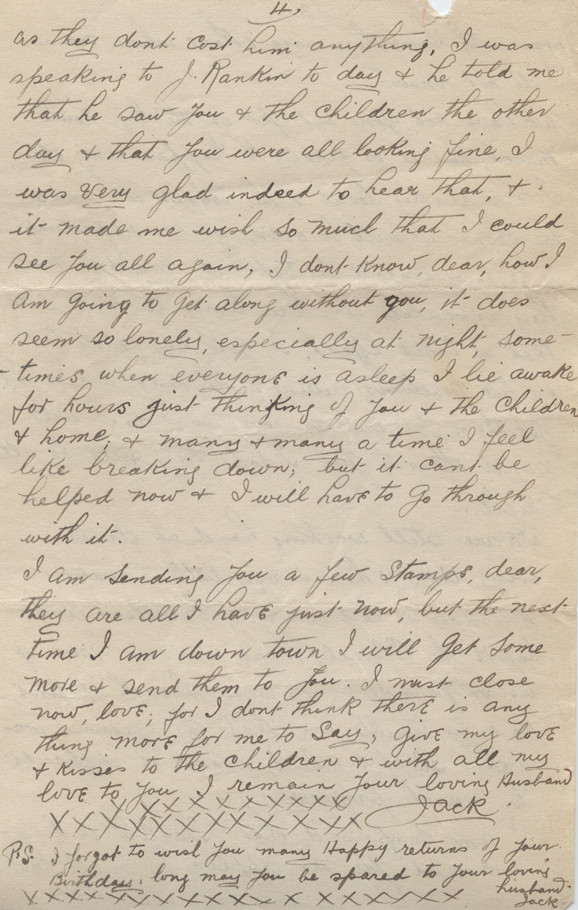 4.
as they dont cost him anything, I was
speaking to J. Rankin to day & he told me
that he saw you & the children the other
day & that you were all looking fine, I
was very glad indeed to hear that, &
it made me wish so much that I could
see you all again, I dont know, dear, how I
am going to get along without you, it does
seem so lonely, especially at night, some-
times, when everyone is asleep I lie awake
for hours just thinking of you & the children
& home, & many & many a time I feel
like breaking down, but it cant be
helped now & I will have to go through
with it.
I am sending you a few stamps, dear,
they are all I have just now, but the next
time I am down town I will get some
more & send them to you. I must close
now, love, for I dont think there is any
thing more for me to say, give my love
& kisses to the children & with all my
love to you I remain your loving Husband
XXXXXXXXXX Jack.
XXXXXXXXXXXXX
P.S. I forgot to wish you many Happy returns of your
Birthday, long may you be spared to your loving
husband
XXXXXXXXXXXXXXXXXX Jack